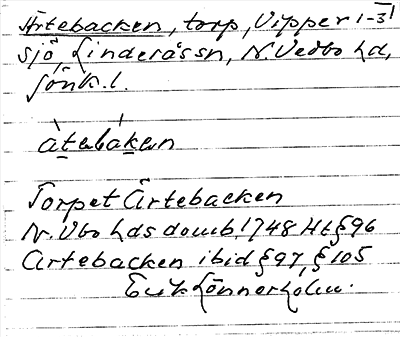 Ärtebacken, torp, Vipper 1-3
sjö, Linderås sn, N. Vedbo hd,
Jönk. l.
àtebáken
Torpet Ärtebacken
N. Vbo hds domb. 1748 Ht § 96
Ärtebacken ibid § 97, § 105
Erik Lönnerholm.